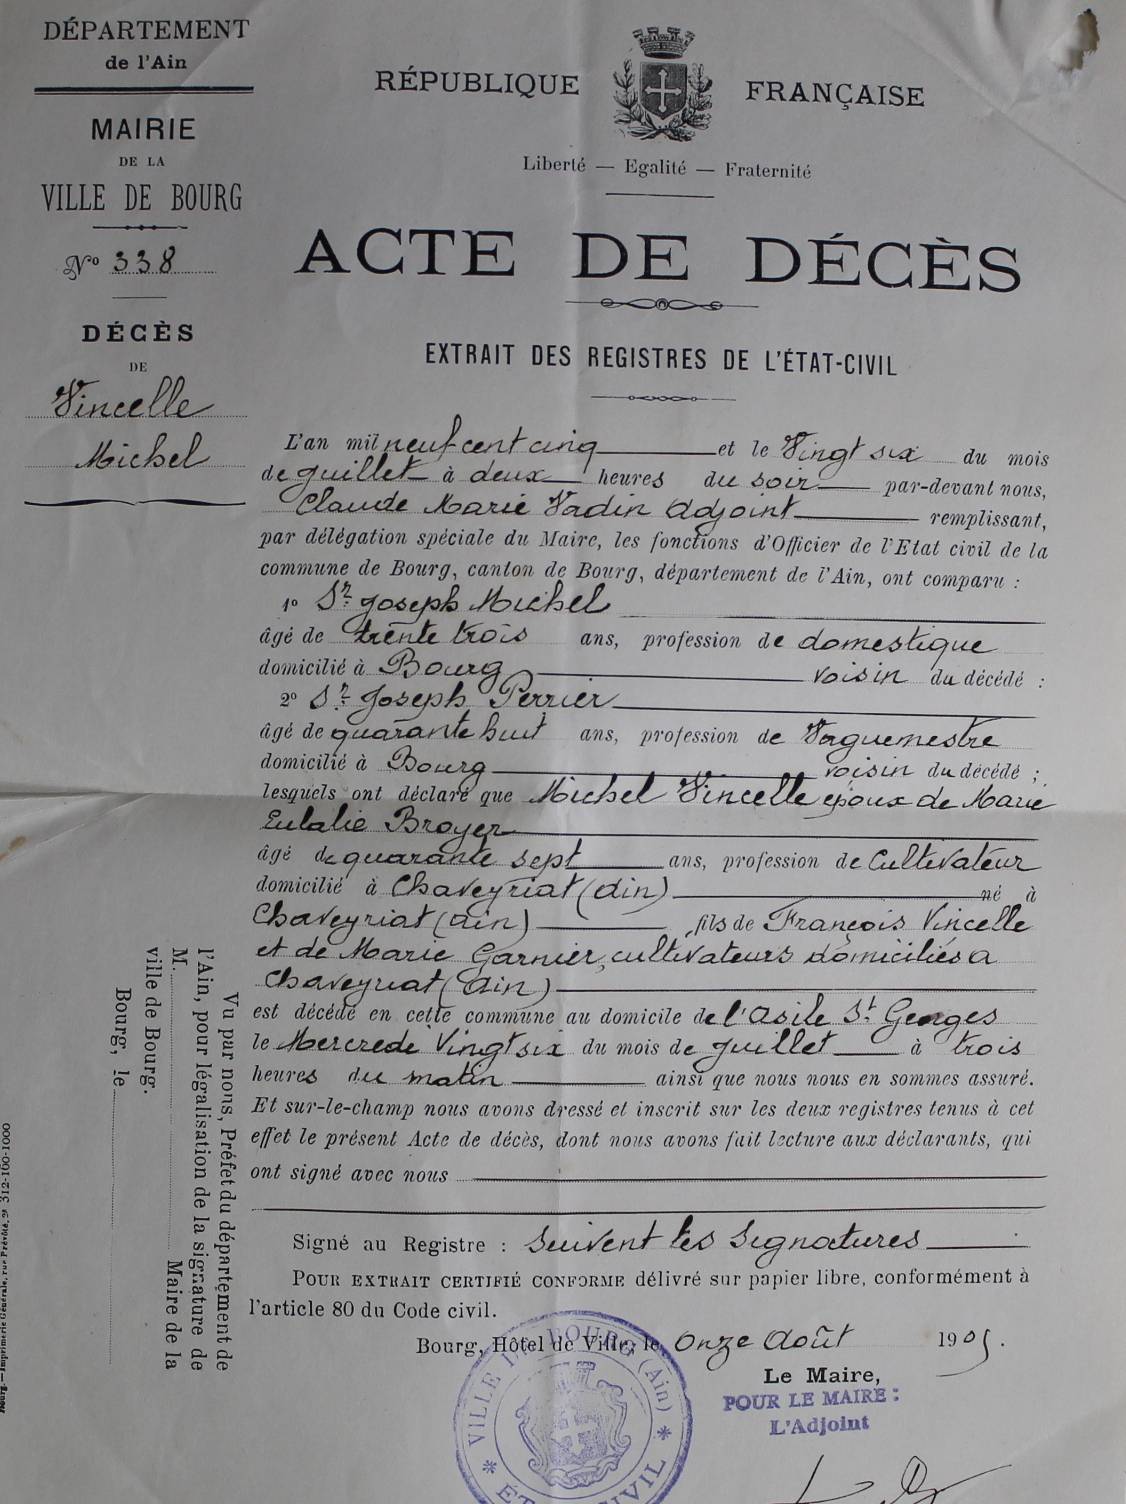 DÉPARTEMENT
de l'Ain
MAIRIE
DE LA
VILLE DE BOURG
No 338
DÉCÈS
DE
Vincelle
Michel
RÉPUBLIQUE FRANÇAISE
Liberté — Egalité — Fraternité
ACTE DE DÉCÈS
EXTRAIT DES REGISTRES DE L'ÉTAT-CIVIL
L'an mil neuf cent cinq et le Vingt six du mois
de juillet à deux heures du soir par-devant nous,
Claude Marie Vadin adjoint remplissant,
par délégation spéciale du Maire, les fonctions d'Officier de l'Etat civil de la
commune de Bourg, canton de Bourg, département de l'Ain, ont comparu :
1o Sr Joseph Michel
âgé de trente trois ans, profession de domestique
domicilié à Bourg voisin du décédé :
2o Sr Joseph Perrier
âgé de quarante huit ans, profession de Vaguemestre
domicilié à Bourg voisin du décédé ;
lesquels ont déclaré que Michel Vincelle époux de Marie
Eulalie Broyer
âgé de quarante sept ans, profession de Cultivateur
domicilié à Chaveyriat (ain) né à
Chaveyriat (ain) fils de François Vincelle
et de Marie Garnier, cultivateurs domiciliés a
Chaveyriat (ain)
est décédé en cette commune au domicile de l'asile St Georges
le Mercredi Vingt six du mois de juillet à trois
heures du matin ainsi que nous nous en sommes assuré.
Et sur-le-champ nous avons dressé et inscrit sur les deux registres tenus à cet
effet le présent Acte de décès, dont nous avons fait lecture aux déclarants, qui
ont signé avec nous
Signé au Registre : Suivent les Signatures
POUR EXTRAIT CERTIFIÉ CONFORME délivré sur papier libre, conformément à
l'article 80 du Code civil.
Bourg, Hôtel de Ville, le onze Août 1905.
Le Maire,
POUR LE MAIRE :
L'Adjoint
VILLE DE BOURG (Ain)
* ÉTAT CIVIL *
Vu par nous, Préfet du département de
l'Ain, pour légalisation de la signature de
M. Maire de la
ville de Bourg.
Bourg, le
Bourg. — Imprimerie Générale, rue Prévôté, 312-100-1000